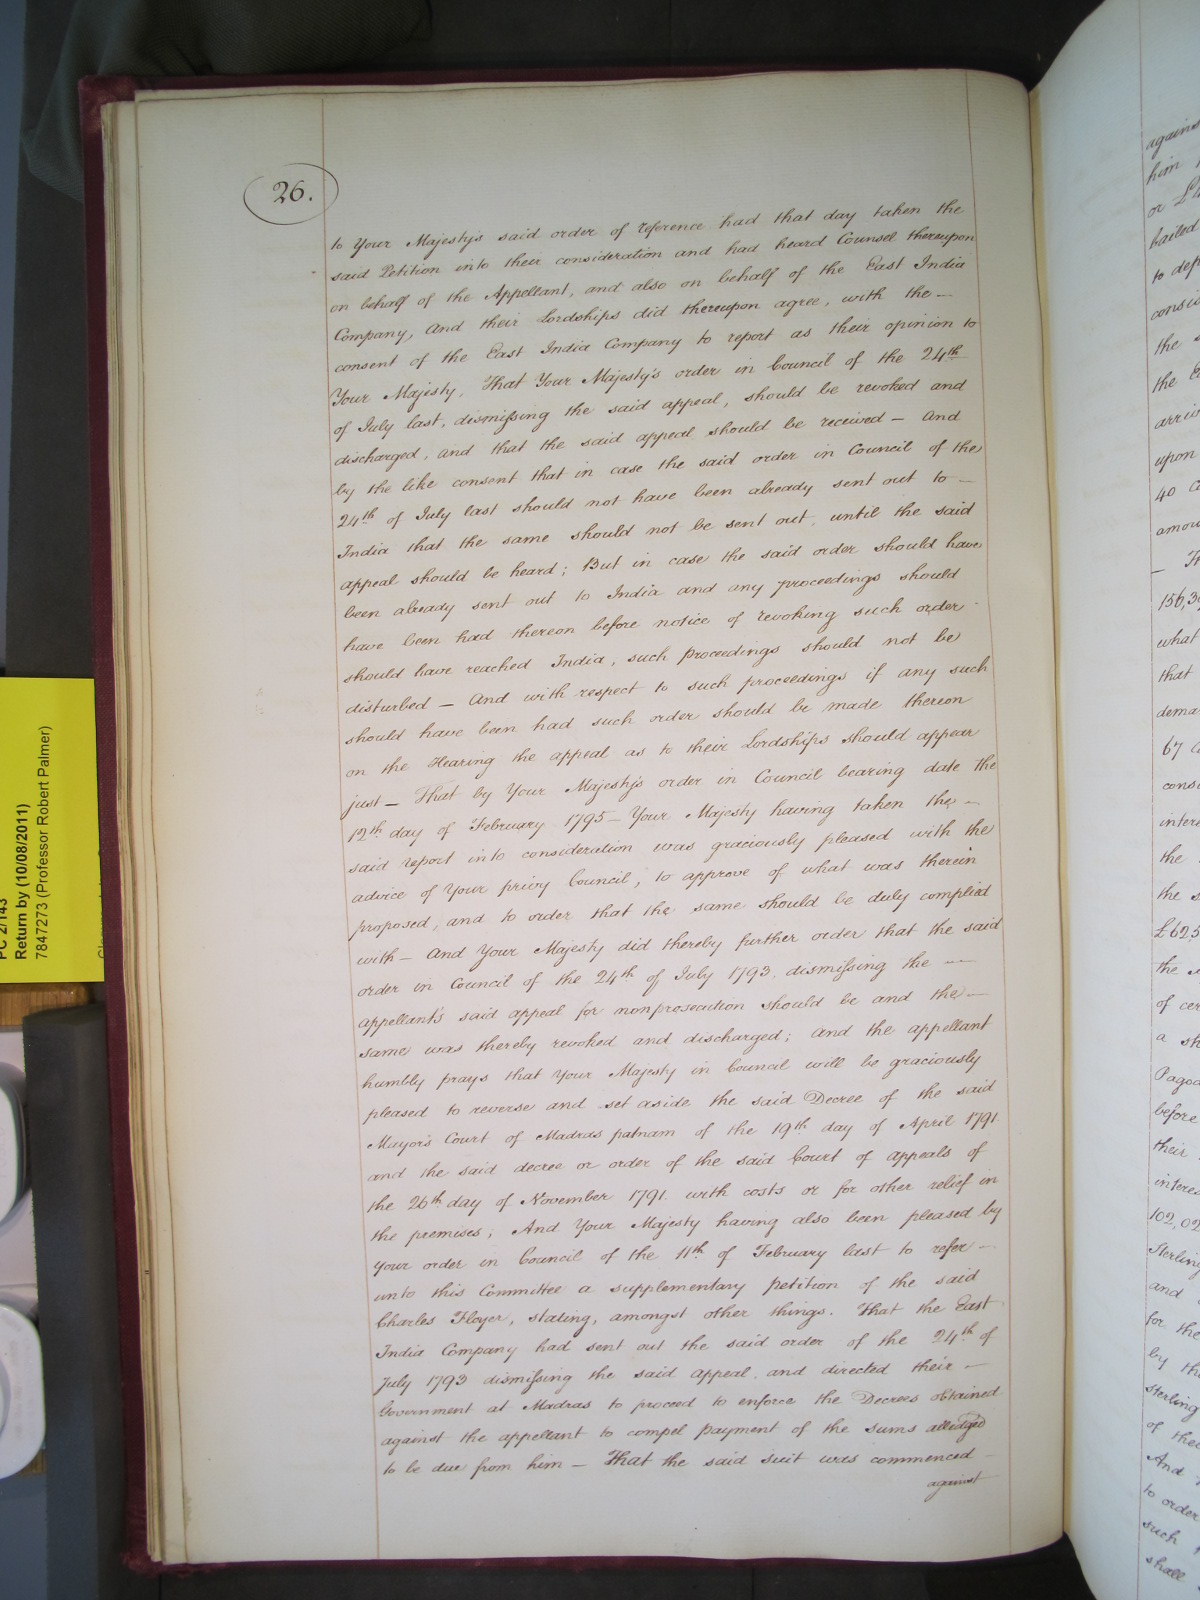 26.
to Your Majesty's said order of reference had that day taken the
said Petition into their consideration and had heard Counsel thereupon
on behalf of the Appellant, and also on behalf of the East India
Company, And their Lordships did thereupon agree, with the —
consent of the East India Company to report as their opinion to
Your Majesty, That Your Majesty's order in Council of the 24th
of July last, dismissing the said appeal, should be revoked and
discharged, and that the said appeal should be received — And
by the like consent that in case the said order in Council of the
24th of July last should not have been already sent out to —
India that the same should not be sent out, until the said
appeal should be heard; But in case the said order should have
been already sent out to India and any proceedings should
have been had thereon before notice of revoking such order
should have reached India, such proceedings should not be
disturbed — And with respect to such proceedings if any such
should have been had such order should be made thereon
on the Hearing the appeal as to their Lordships should appear
just — That by Your Majesty's order in Council bearing date the
12th day of February 1795 — Your Majesty having taken the —
said report into consideration was graciously pleased with the
advice of Your privy Council, to approve of what was therein
proposed, and to order that the same should be duly complied
with — And Your Majesty did thereby further order that the said
order in Council of the 24th of July 1793, dismissing the —
appellant's said appeal for nonprosecution should be and the —
same was thereby revoked and discharged; And the appellant
humbly prays that Your Majesty in Council will be graciously
pleased to reverse and set aside the said Decree of the said
Mayor's Court of Madraspatnam of the 19th day of April 1791.
and the said decree or order of the said Court of appeals of
the 26th day of November 1791. with costs or for other relief in
the premises; And Your Majesty having also been pleased by
your order in Council of the 11th of February last to refer —
unto this Committee a supplementary petition of the said
Charles Floyer, stating, amongst other things. That the East
India Company had sent out the said order of the 24th of
July 1793 dismissing the said appeal, and directed their —
Government at Madras to proceed to enforce the Decrees obtained
against the appellant to compel payment of the sums alledged
to be due from him — That the said suit was commenced —
against
PC 2/143
Return by (10/08/2011)
7847273 (Professor Robert Palmer)
against
him
or
bailed
to
the
the
upon
40
156,3
what
that
67
the
the
£625
the
of cer
a
before
their
102,02
Sterling
and
for the
by
sterling
of
And
to order
such
shall